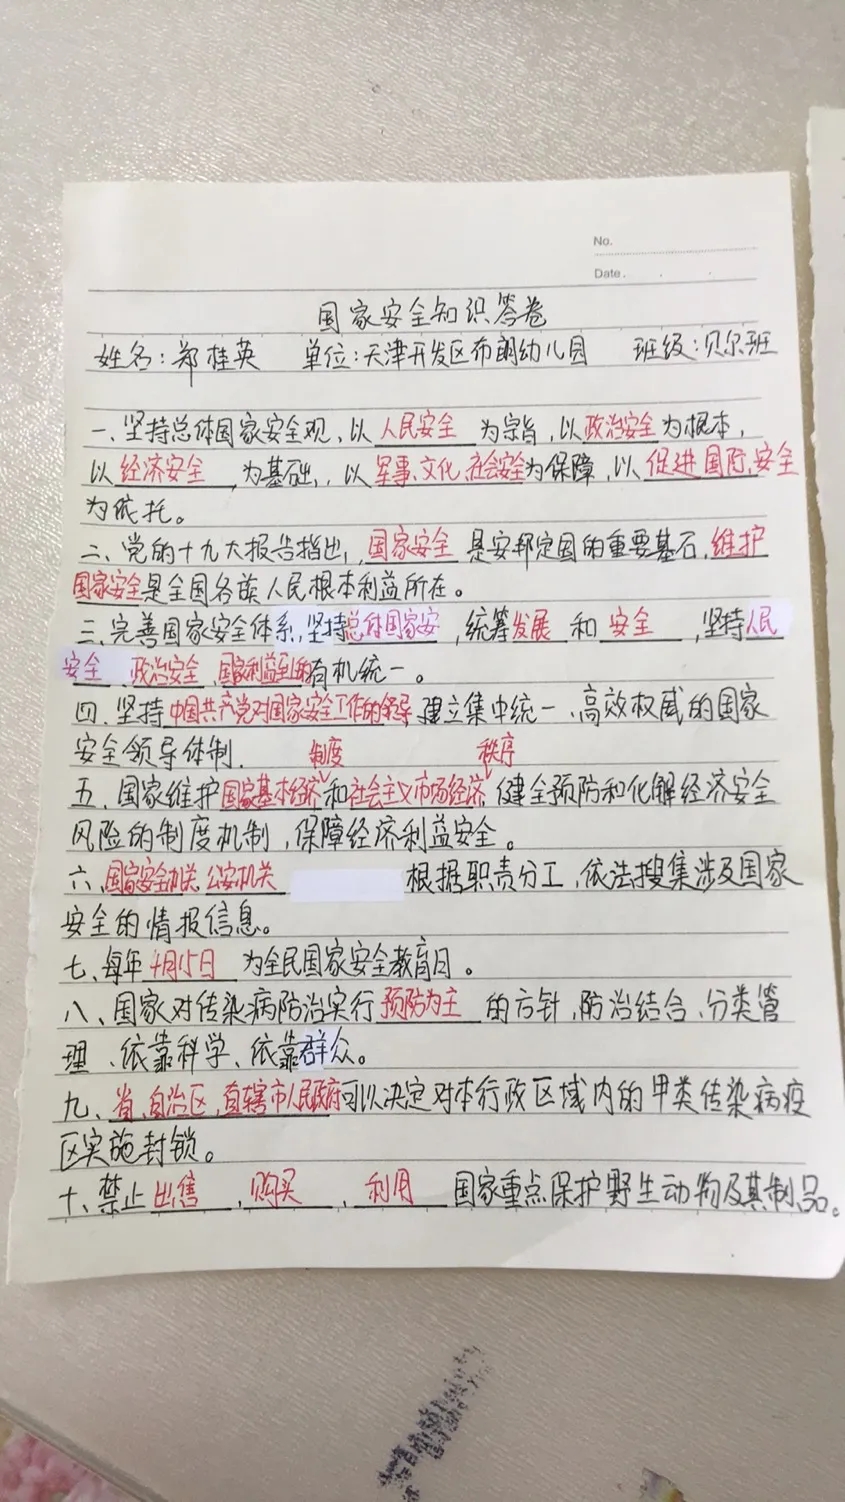 No.
Date.
国家安全知识答卷
姓名：郑桂英 单位：天津开发区布朗幼儿园 班级：贝尔班
一、坚持总体国家安全观、以人民安全为宗旨，以政治安全为根本，
以经济安全，为基础，，以军事、文化、社会安全为保障，以促进国际安全
为依托。
二、党的十九大报告指出，国家安全是安邦定国的重要基石，维护
国家安全是全国各族人民根本利益所在。
三、完善国家安全体系，坚持总体国家安，统筹发展和安全，坚持人民
安全、政治安全、国家利益至上的有机统一。
四、坚持中国共产党对国家安全工作的领导建立集中统一、高效权威的国家
安全领导体制．
制度 秩序
五、国家维护国家基本经济和社会主义市场经济，健全预防和化解经济安全
风险的制度机制，保障经济利益安全。
六、国家安全机关、公安机关 根据职责分工，依法搜集涉及国家
安全的情报信息。
七、每年4月15日为全民国家安全教育日。
八、国家对传染病防治实行预防为主的方针，防治结合、分类管
理、依靠科学、依靠群众。
九、省、自治区、直辖市人民政府可以决定对本行政区域内的甲类传染病疫
区实施封锁。
十、禁止出售、购买、利用国家重点保护野生动物及其制品。